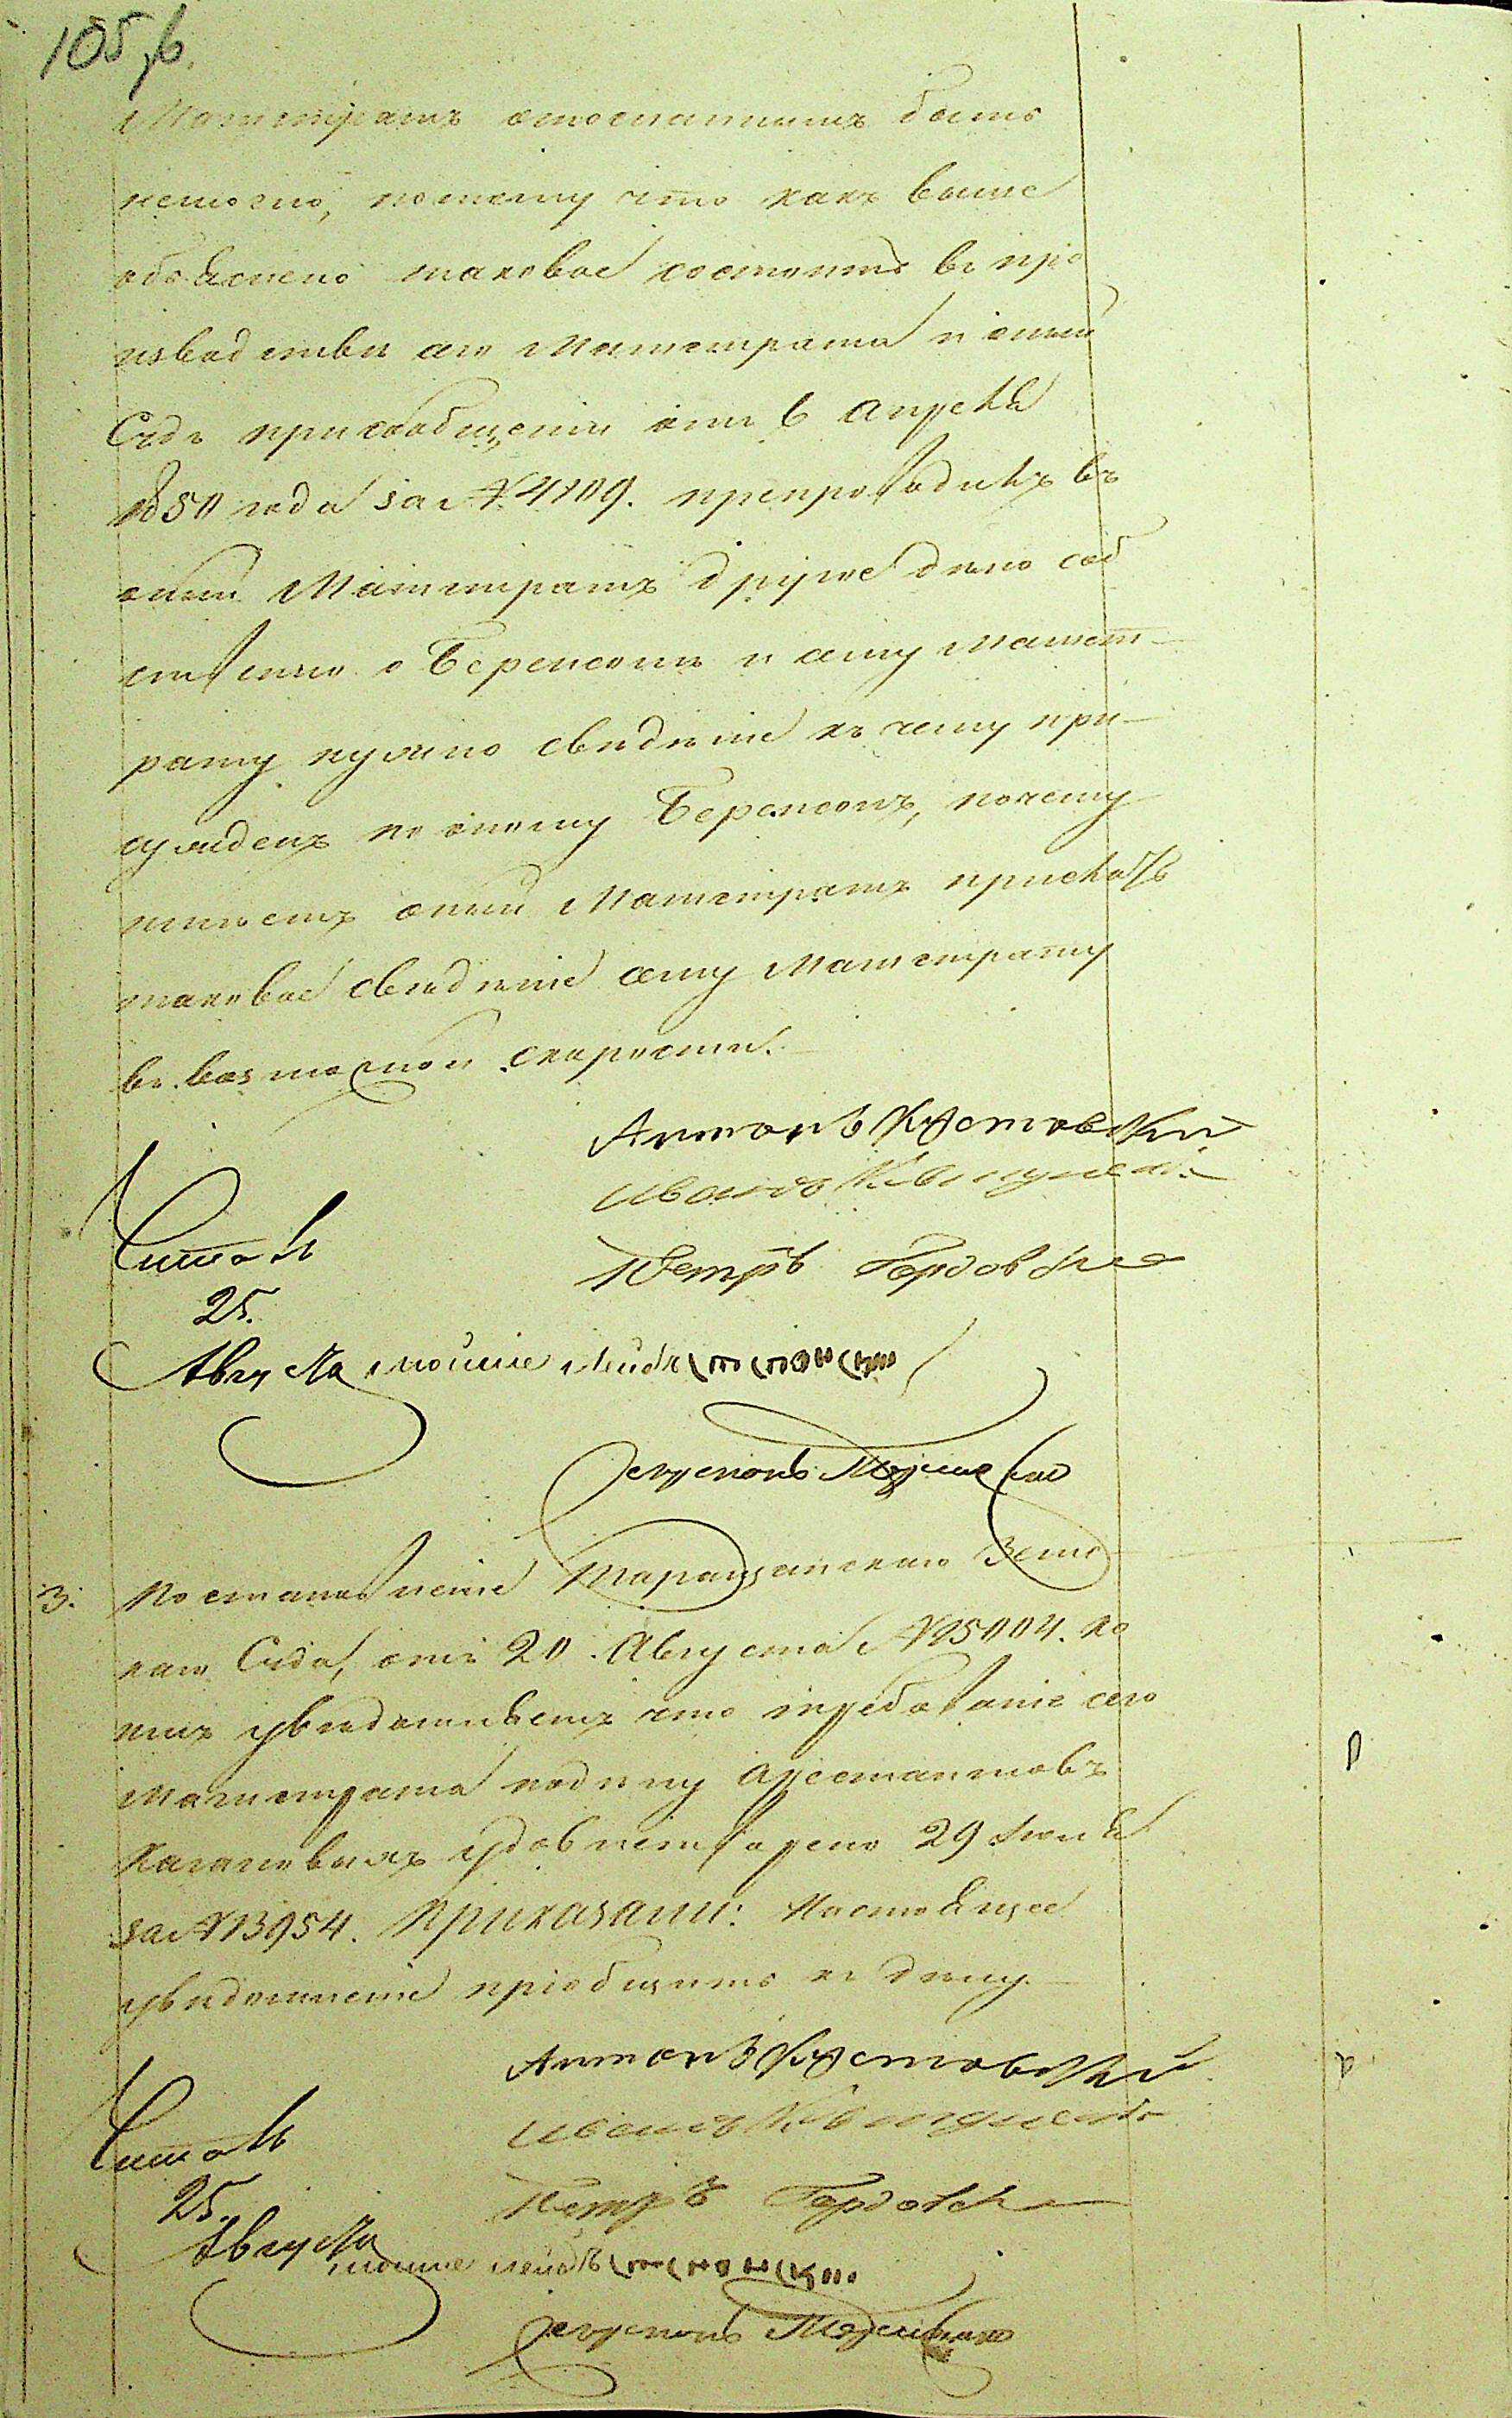 Магистратъ отосланнымъ быть
неможно, потому что какъ выше
объяснено таковое состоитъ въ про
изводстве сего Магистрата и оный
Судъ при сообщеніи отъ 6 Апреля
1850 года за № 4109. препроводилъ въ
оный Магистратъ другое дело соб
ственно о Беренсоне и сему Магист-
рату нужно сведеніе къ чему при-
сужденъ по оному Беренсонъ, почему
имеетъ оный Магистратъ прислать
таковое сведеніе сему Магистрату
въ возможной скорости.
Антонъ
Иванъ
Петръ
Читалъ
25.
Августа
3. Постановленіе Таращанскаго Земс
каго Суда, отъ 20. Августа № 15004. ко
имъ уведомляетъ что требованіе сего
Магистрата поделу Арестантовъ
удовлетворено 29 Іюня
за № 13954. Приказали: Настоящее
уведомленіе пріобщить къ делу.
Антонъ
Иванъ
Петръ
Читалъ
25.
Августа